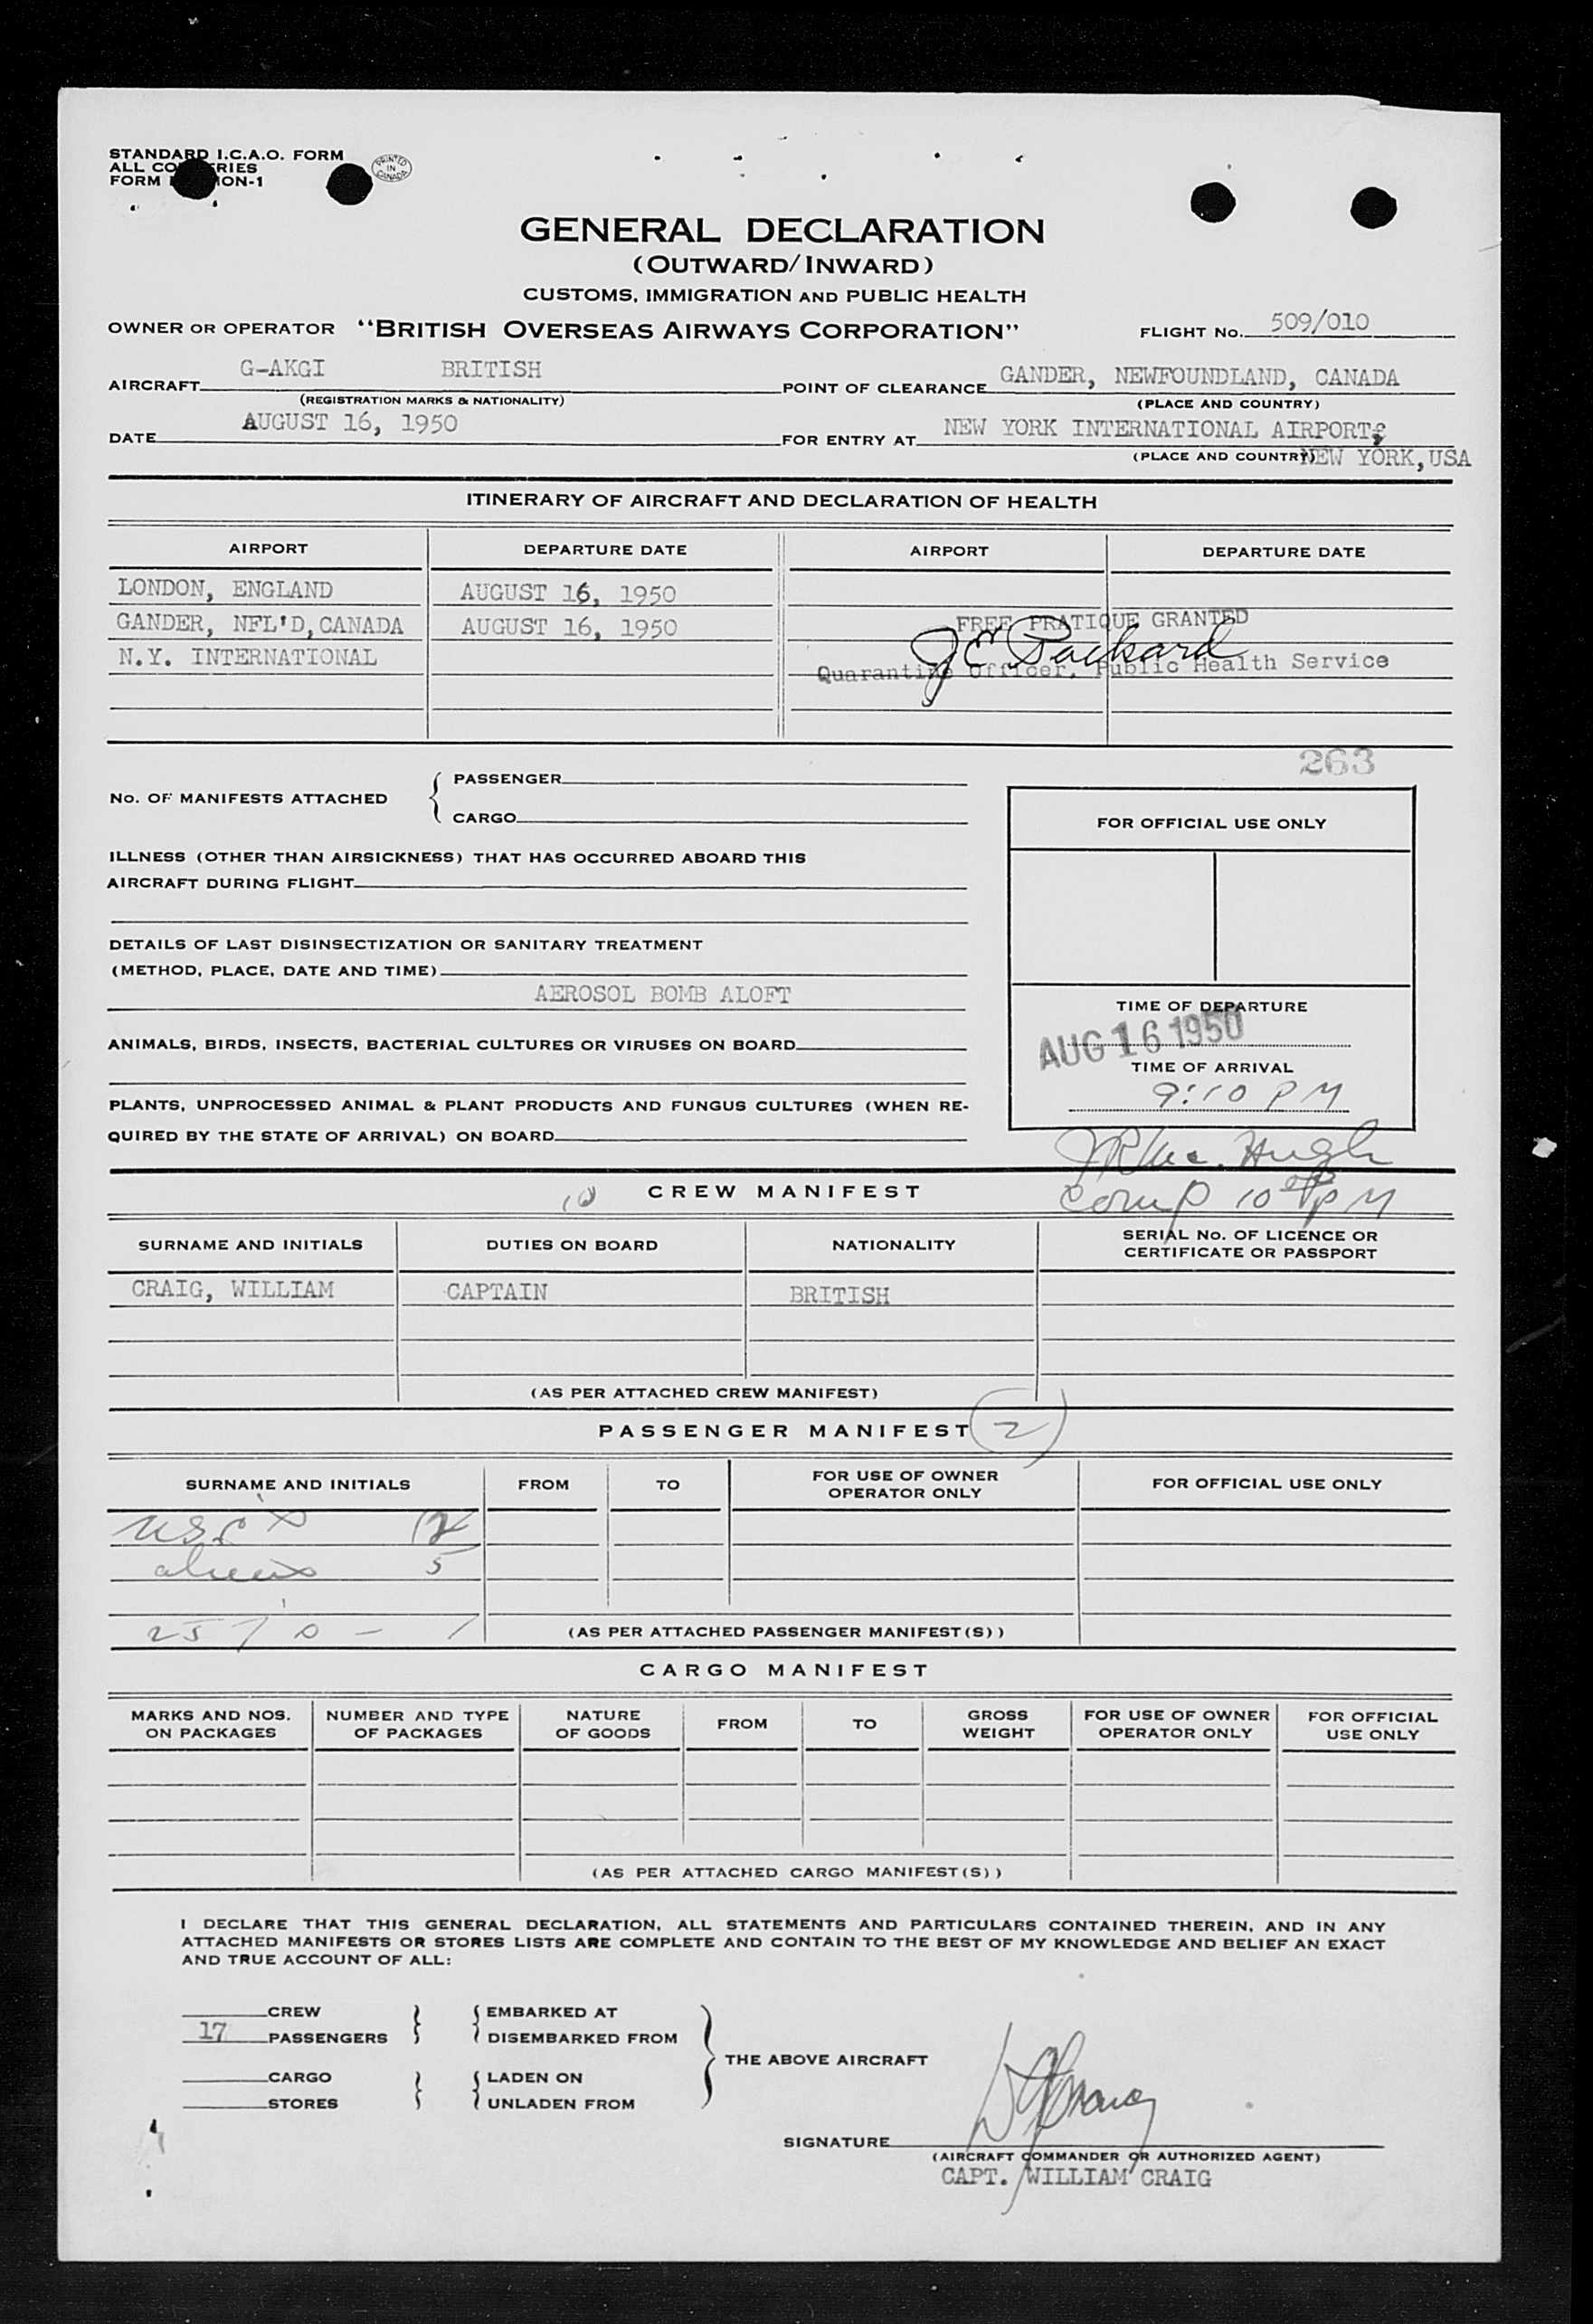 STANDARD I.C.A.O. FORM
ALL COUNTRIES
FORM ION-1
PRINTED IN CANADA
GENERAL DECLARATION
(OUTWARD/INWARD)
CUSTOMS, IMMIGRATION AND PUBLIC HEALTH
OWNER OR OPERATOR "BRITISH OVERSEAS AIRWAYS CORPORATION" FLIGHT No. 509/010
AIRCRAFT G-AKGI BRITISH POINT OF CLEARANCE GANDER, NEWFOUNDLAND, CANADA
(REGISTRATION MARKS & NATIONALITY) (PLACE AND COUNTRY)
DATE AUGUST 16, 1950 FOR ENTRY AT NEW YORK INTERNATIONAL AIRPORT,
(PLACE AND COUNTRY) NEW YORK, USA
ITINERARY OF AIRCRAFT AND DECLARATION OF HEALTH
AIRPORT DEPARTURE DATE AIRPORT DEPARTURE DATE
LONDON, ENGLAND AUGUST 16, 1950
GANDER, NFL'D, CANADA AUGUST 16, 1950 FREE PRATIQUE GRANTED
J E Packard
N.Y. INTERNATIONAL Quarantine Officer, Public Health Service
263
No. OF MANIFESTS ATTACHED { PASSENGER
CARGO
FOR OFFICIAL USE ONLY
ILLNESS (OTHER THAN AIRSICKNESS) THAT HAS OCCURRED ABOARD THIS
AIRCRAFT DURING FLIGHT
DETAILS OF LAST DISINSECTIZATION OR SANITARY TREATMENT
(METHOD, PLACE, DATE AND TIME)
AEROSOL BOMB ALOFT
TIME OF DEPARTURE
AUG 16 1950
ANIMALS, BIRDS, INSECTS, BACTERIAL CULTURES OR VIRUSES ON BOARD
TIME OF ARRIVAL
9:10 PM
PLANTS, UNPROCESSED ANIMAL & PLANT PRODUCTS AND FUNGUS CULTURES (WHEN RE-
QUIRED BY THE STATE OF ARRIVAL) ON BOARD
10 CREW MANIFEST Comp 10 PM
SURNAME AND INITIALS DUTIES ON BOARD NATIONALITY SERIAL No. OF LICENCE OR
CERTIFICATE OR PASSPORT
CRAIG, WILLIAM CAPTAIN BRITISH
(AS PER ATTACHED CREW MANIFEST)
PASSENGER MANIFEST 2
SURNAME AND INITIALS FROM TO FOR USE OF OWNER
OPERATOR ONLY FOR OFFICIAL USE ONLY
12
aliens 5
(AS PER ATTACHED PASSENGER MANIFEST(S))
CARGO MANIFEST
MARKS AND NOS.
ON PACKAGES NUMBER AND TYPE
OF PACKAGES NATURE
OF GOODS FROM TO GROSS
WEIGHT FOR USE OF OWNER
OPERATOR ONLY FOR OFFICIAL
USE ONLY
(AS PER ATTACHED CARGO MANIFEST(S))
I DECLARE THAT THIS GENERAL DECLARATION, ALL STATEMENTS AND PARTICULARS CONTAINED THEREIN, AND IN ANY
ATTACHED MANIFESTS OR STORES LISTS ARE COMPLETE AND CONTAIN TO THE BEST OF MY KNOWLEDGE AND BELIEF AN EXACT
AND TRUE ACCOUNT OF ALL:
CREW } { EMBARKED AT
17 PASSENGERS } { DISEMBARKED FROM
THE ABOVE AIRCRAFT
CARGO } { LADEN ON
STORES } { UNLADEN FROM
SIGNATURE
(AIRCRAFT COMMANDER OR AUTHORIZED AGENT)
CAPT. WILLIAM CRAIG